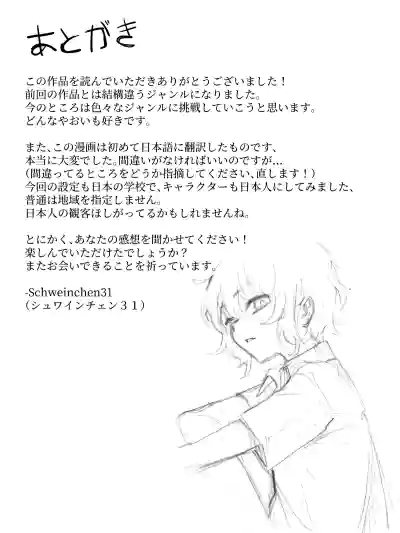 あとがき
この作品を読んでいただきありがとうございました！
前回の作品とは結構違うジャンルになりました。
今のところは色々なジャンルに挑戦していこうと思います。
どんなやおいも好きです。
また、この漫画は初めて日本語に翻訳したものです、
本当に大変でした。間違いがなければいいのですが...
（間違ってるところをどうか指摘してください、直します！）
今回の設定も日本の学校で、キャラクターも日本人にしてみました、
普通は地域を指定しません。
日本人の観客はしがってるかもしれませんね。
とにかく、あなたの感想を聞かせてください！
楽しんでいただけたでしょうか？
またお会いできることを祈っています。
-Schweinchen31
（シュワインチェン３１）